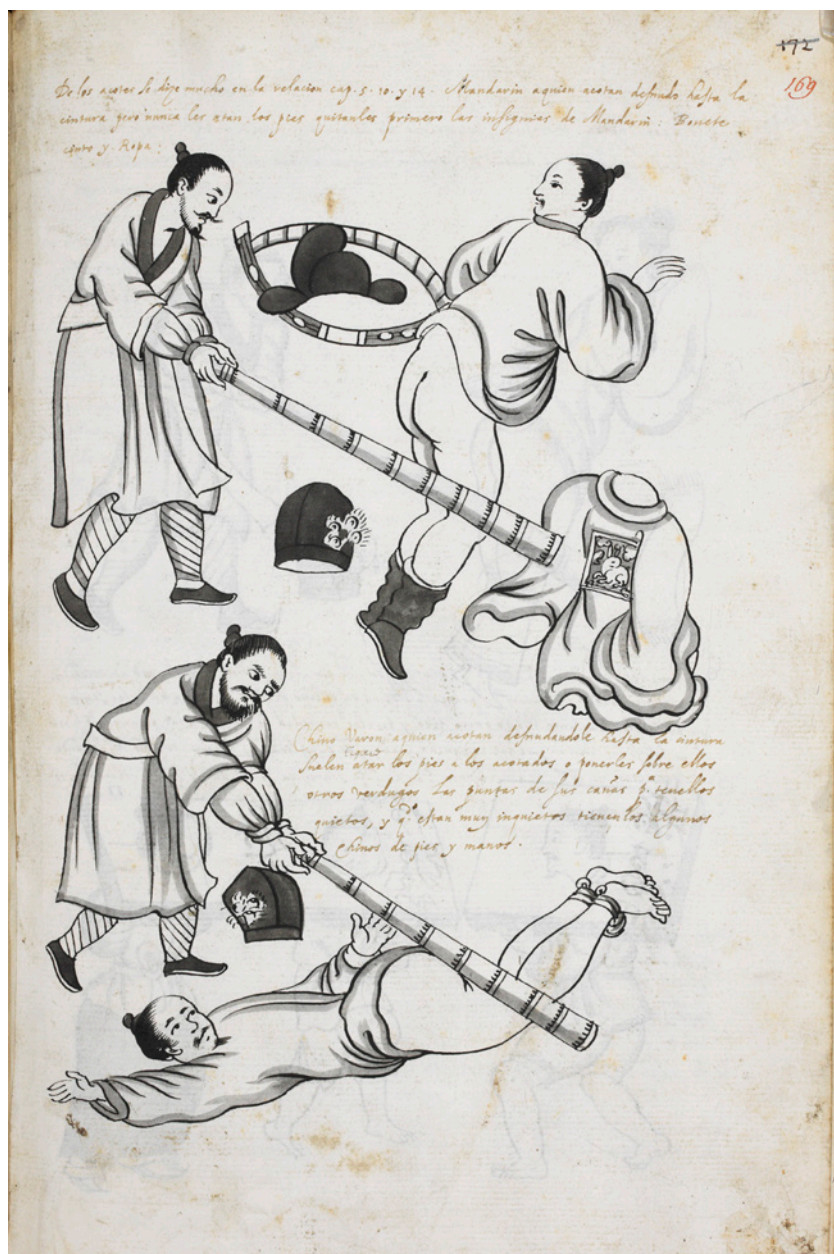 172
169
De los açotes se dize mucho en la relacion cap. 5. 10. y 14. Mandarin aquien açotan desnudo hasta la
cintura pero nunca les atan los pies quitanles primero las insignias de Mandarin: Bonete
cinto y Ropa:
Chino Varon aquien acotan desnudandole hasta la cintura
suelen atar los pies a los acotados o ponerles sobre ellos
otros verdugos las puntas de sus cañas pª tenellos
quietos, y qº estan muy inquietos tienenlos algunos
chinos de pies y manos.